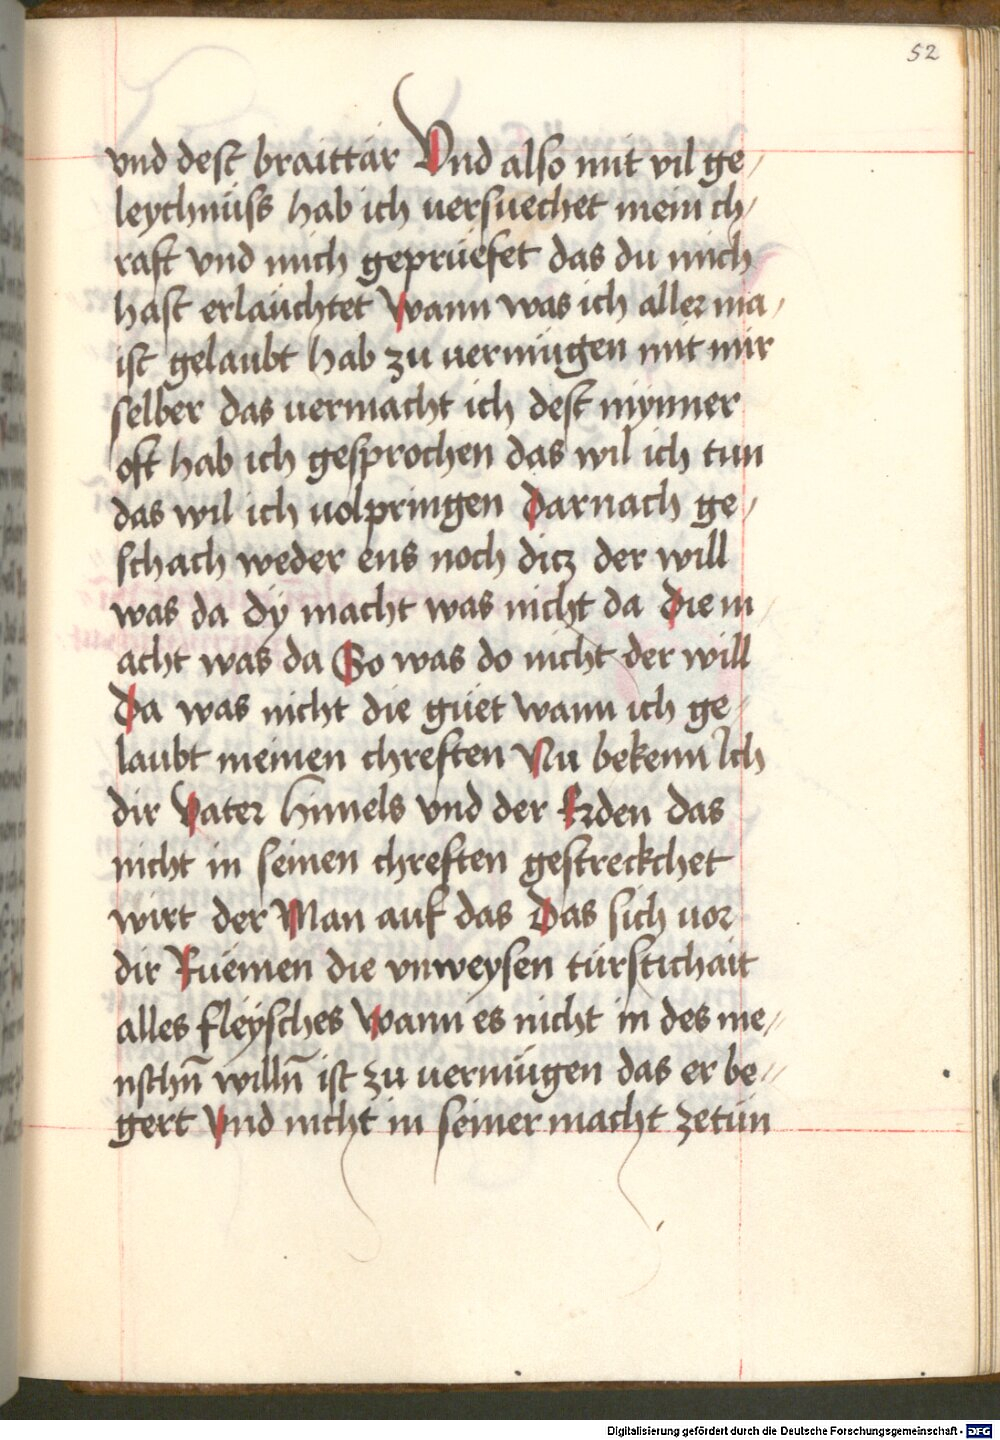 52
vnd dest braittär Vnd also mit vil ge/
leychnüss hab ich versuechet mein ch/
raft vnd mich geprüefet das du mich
hast erläuchtet Wann was ich aller ma/
ist gelaubt hab zu uermügen mit mir
selber das uermacht ich dest mÿnner
oft hab ich gesprochen das wil ich tun
das wil ich uolpringen Darnach ge/
schach weder ens noch ditz der will
was da dÿ macht was nicht da Die m/
acht was da So was do nicht der will
Da was nicht die güet wann ich ge/
laubt meinen chreften Nu bekenn Ich
dir Vater himels vnd der Erden das
nicht in seinen chreften gestreckchet
wirt der Man auf das Das sich uor
dir Rüemen die vnweysen türstichait
alles fleÿsches Wann es nicht in des me//
nschn̄ willn̄ ist zu uermügen das er be//
gert Vnd nicht in seiner macht zetün
Digitalisierung gefördert durch die Deutsche Forschungsgemeinschaft - DFG